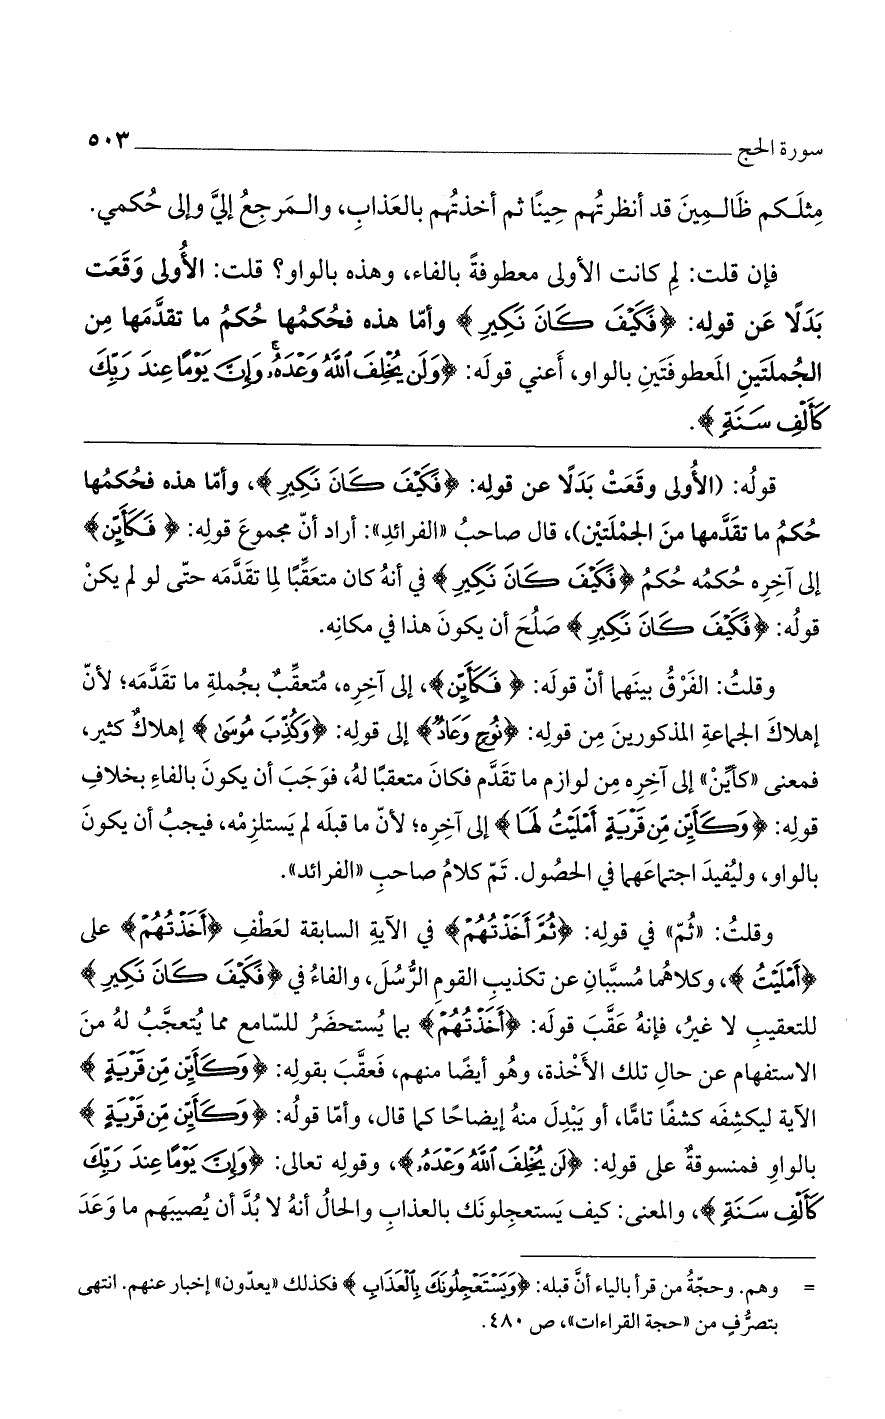 سورة الحج ٥٠٣
مِثلَكم ظَالِمِينَ قد أنظرتُهم حِينًا ثم أخذتُهم بالعَذابِ، والمَرجِعُ إليَّ وإلى حُكمي.
فإن قلت: لِم كانت الأولى معطوفةً بالفاء، وهذه بالواو؟ قلت: الأُولى وَقَعَت
بَدَلًا عَن قولِه: ﴿فَكَيْفَ كَانَ نَكِيرِ﴾ وأمّا هذه فحُكمُها حُكمُ ما تقدَّمَها مِن
الجُملَتَينِ المَعطوفَتَينِ بالواو، أَعني قولَه: ﴿وَلَن يُخْلِفَ ٱللَّهُ وَعْدَهُۥۚ وَإِنَّ يَوْمًا عِندَ رَبِّكَ
كَأَلْفِ سَنَةٍ﴾.
قولُه: (الأُولى وقعَتْ بَدَلًا عن قولِه: ﴿فَكَيْفَ كَانَ نَكِيرِ﴾، وأمّا هذه فحُكمُها
حُكمُ ما تقدَّمها منَ الجمْلَتيْن)، قال صاحبُ «الفرائدِ»: أراد أنّ مجموعَ قولِه: ﴿فَكَأَيِّن﴾
إلى آخِرِه حُكمُه حُكمُ ﴿فَكَيْفَ كَانَ نَكِيرِ﴾ في أنهُ كان متعَقِّبًا لِما تقَدَّمَه حتّى لو لم يكنْ
قولُه: ﴿فَكَيْفَ كَانَ نَكِيرِ﴾ صَلُحَ أن يكونَ هذا في مكانِه.
وقلتُ: الفَرْقُ بينَهما أنّ قولَه: ﴿فَكَأَيِّن﴾، إلى آخِرِه، مُتعقِّبٌ بجُملةِ ما تقَدَّمَه؛ لأنّ
إهلاكَ الجماعةِ المذكورينَ مِن قولِه: ﴿نُوحٍ وَعَادٌ﴾ إلى قولِه: ﴿وَكُذِّبَ مُوسَىٰ﴾ إهلاكٌ كثير،
فمعنى «كأيِّنْ» إلى آخِرِه مِن لوازمِ ما تقَدَّم فكانَ متعقبًا لهُ، فوَجَبَ أن يكونَ بالفاءِ بخلافِ
قولِه: ﴿وَكَأَيِّن مِّن قَرْيَةٍ أَمْلَيْتُ لَهَا﴾ إلى آخِرِه؛ لأنّ ما قبلَه لم يَستلزِمْه، فيجبُ أن يكونَ
بالواو، وليُفيدَ اجتماعَهما في الحصُول. تَمّ كلامُ صاحبِ «الفرائد».
وقلتُ: «ثُمّ» في قولِه: ﴿ثُمَّ أَخَذْتُهُمْ﴾ في الآيةِ السابقة لعَطْفِ ﴿أَخَذْتُهُمْ﴾ على
﴿أَمْلَيْتُ﴾، وكلاهُما مُسبَّبانِ عن تكذيبِ القومِ الرُّسُلَ، والفاءُ في ﴿فَكَيْفَ كَانَ نَكِيرِ﴾
للتعقيبِ لا غيرُ، فإنهُ عَقَّبَ قولَه: ﴿أَخَذْتُهُمْ﴾ بما يُستحضَرُ للسّامع مما يُتعجَّبُ لهُ منَ
الاستفهام عن حالِ تلك الأَخْذة، وهُو أيضًا منهم، فعَقَّبَ بقولِه: ﴿وَكَأَيِّن مِّن قَرْيَةٍ﴾
الآية ليَكشِفَه كشفًا تامًّا، أو يَبْدِلَ منهُ إيضاحًا كما قال، وأمّا قولُه: ﴿وَكَأَيِّن مِّن قَرْيَةٍ﴾
بالواوِ فمنسوقةٌ على قولِه: ﴿لَن يُخْلِفَ ٱللَّهُ وَعْدَهُۥ﴾، وقولِه تعالى: ﴿وَإِنَّ يَوْمًا عِندَ رَبِّكَ
كَأَلْفِ سَنَةٍ﴾، والمعنى: كيف يَستعجِلونَك بالعذابِ والحالُ أنهُ لا بُدَّ أن يُصيبَهم ما وَعَدَ
= وهم. وحجّةُ من قرأ بالياء أنَّ قبله: ﴿وَيَسْتَعْجِلُونَكَ بِٱلْعَذَابِ﴾ فكذلك «يعدّون» إخبار عنهم. انتهى
بتصرُّفٍ من «حجة القراءات»، ص ٤٨٠.